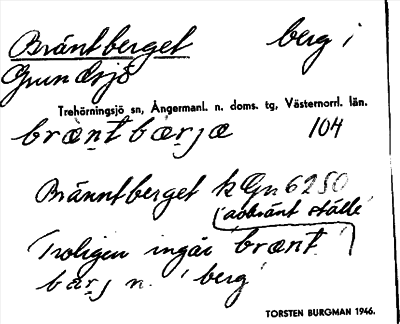 Bräntberget berg i
Grundsjö
Trehörningsjö sn, Ångermanl. n. doms. tg, Västernorrl. län.
brænt bærjæ 104
Bränntberget k Gn 6250
'avbränt ställe'
Troligen ingår brænt
bærj n. 'berg'
TORSTEN BURGMAN 1946.